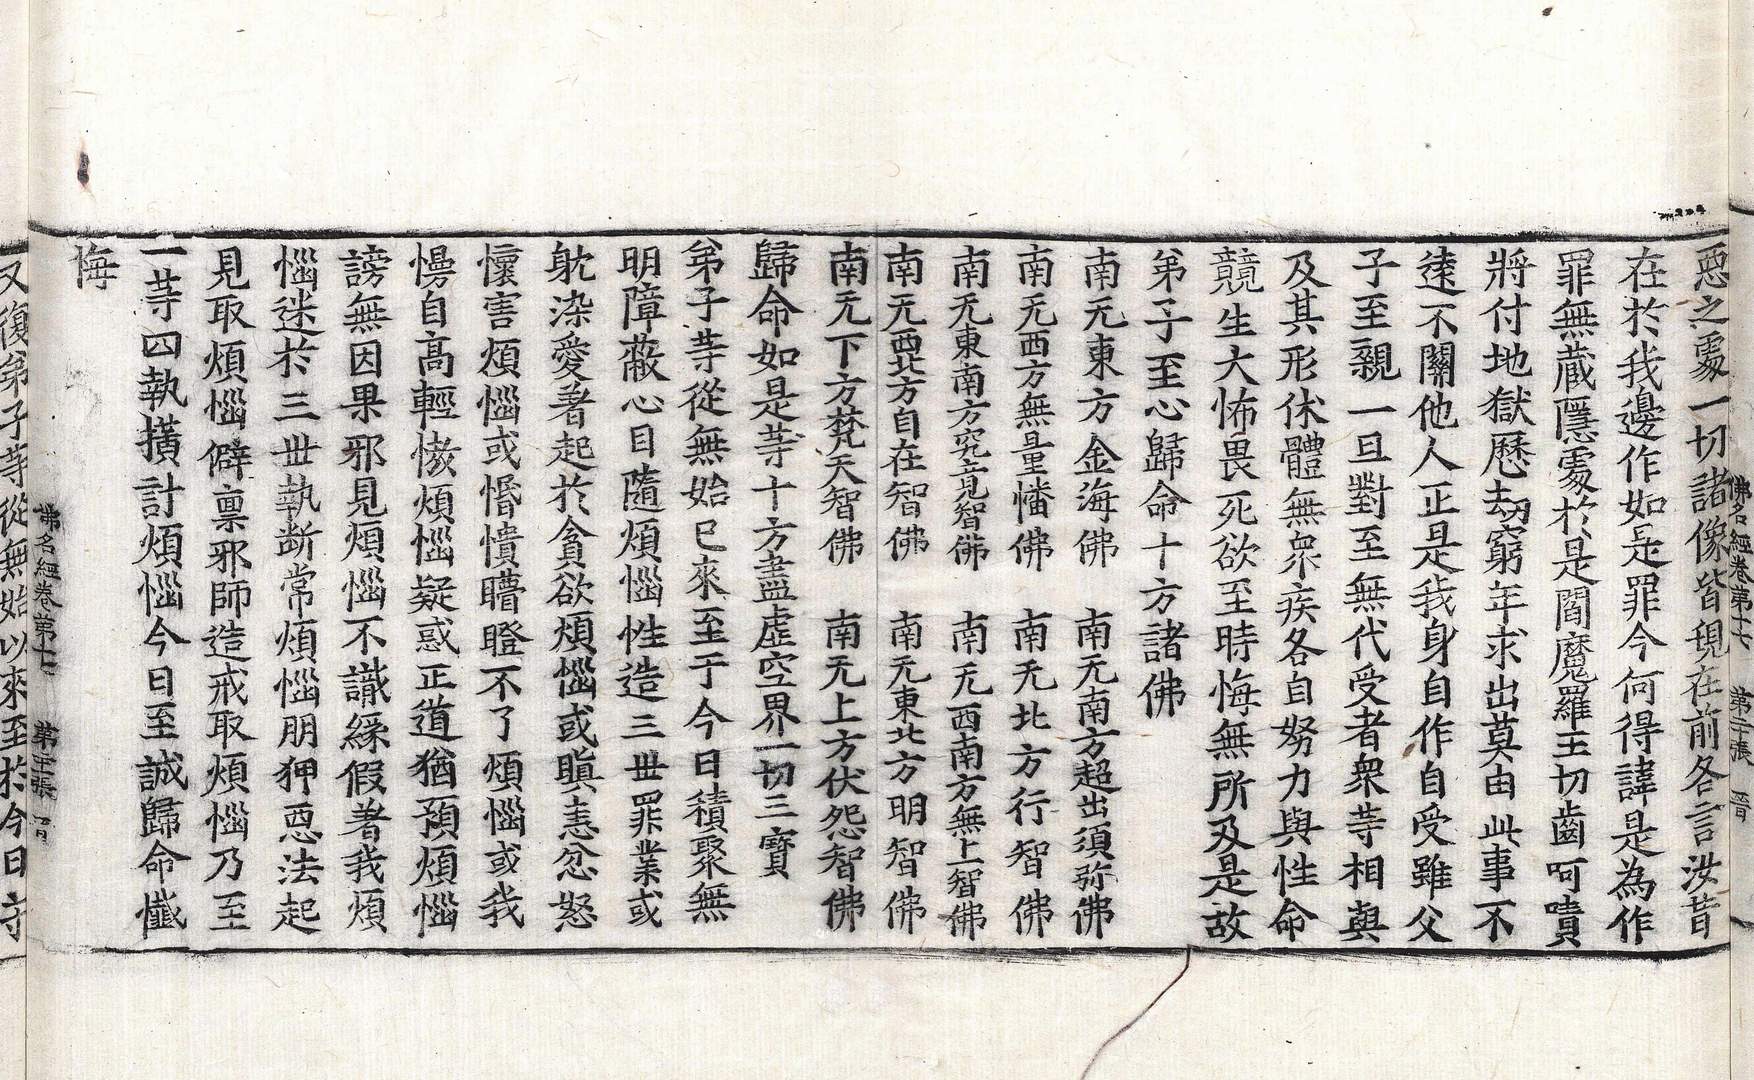 佛名經卷第十七　第二十張　晉
惡之處一切諸像皆現在前各言汝昔
在於我邊作如是罪今何得諱是為作
罪無藏隱處於是閻魔羅王切齒呵嘖
將付地獄歷劫窮年求出莫由此事不
遠不關他人正是我身自作自受雖父
子至親一旦對至無代受者眾等相與
及其形休體無眾疾各自努力與性命
競生大怖畏死欲至時悔無所及是故
弟子至心歸命十方諸佛
南无東方金海佛　南无南方超出須弥佛
南无西方無量幡佛　南无北方行智佛
南无東南方究竟智佛　南无西南方無上智佛
南无西北方自在智佛　南无東北方明智佛
南无下方梵天智佛　南无上方伏怨智佛
歸命如是等十方盡虛空界一切三寶
弟子等從無始已來至于今日積聚無
明障蔽心目隨煩惱性造三世罪業或
躭染愛著起於貪欲煩惱或瞋恚忿怒
懷害煩惱或惛憒瞢瞪不了煩惱或我
慢自高輕慠煩惱疑惑正道猶預煩惱
謗無因果邪見煩惱不識緣假著我煩
惱迷於三世執断常煩惱朋狎惡法起
見取煩惱僻稟邪師造戒取煩惱乃至
一等四執撗計煩惱今日至誠歸命懺
悔
佛名經卷第十七　第張　晉
又復弟子等從無始以來至於今日守